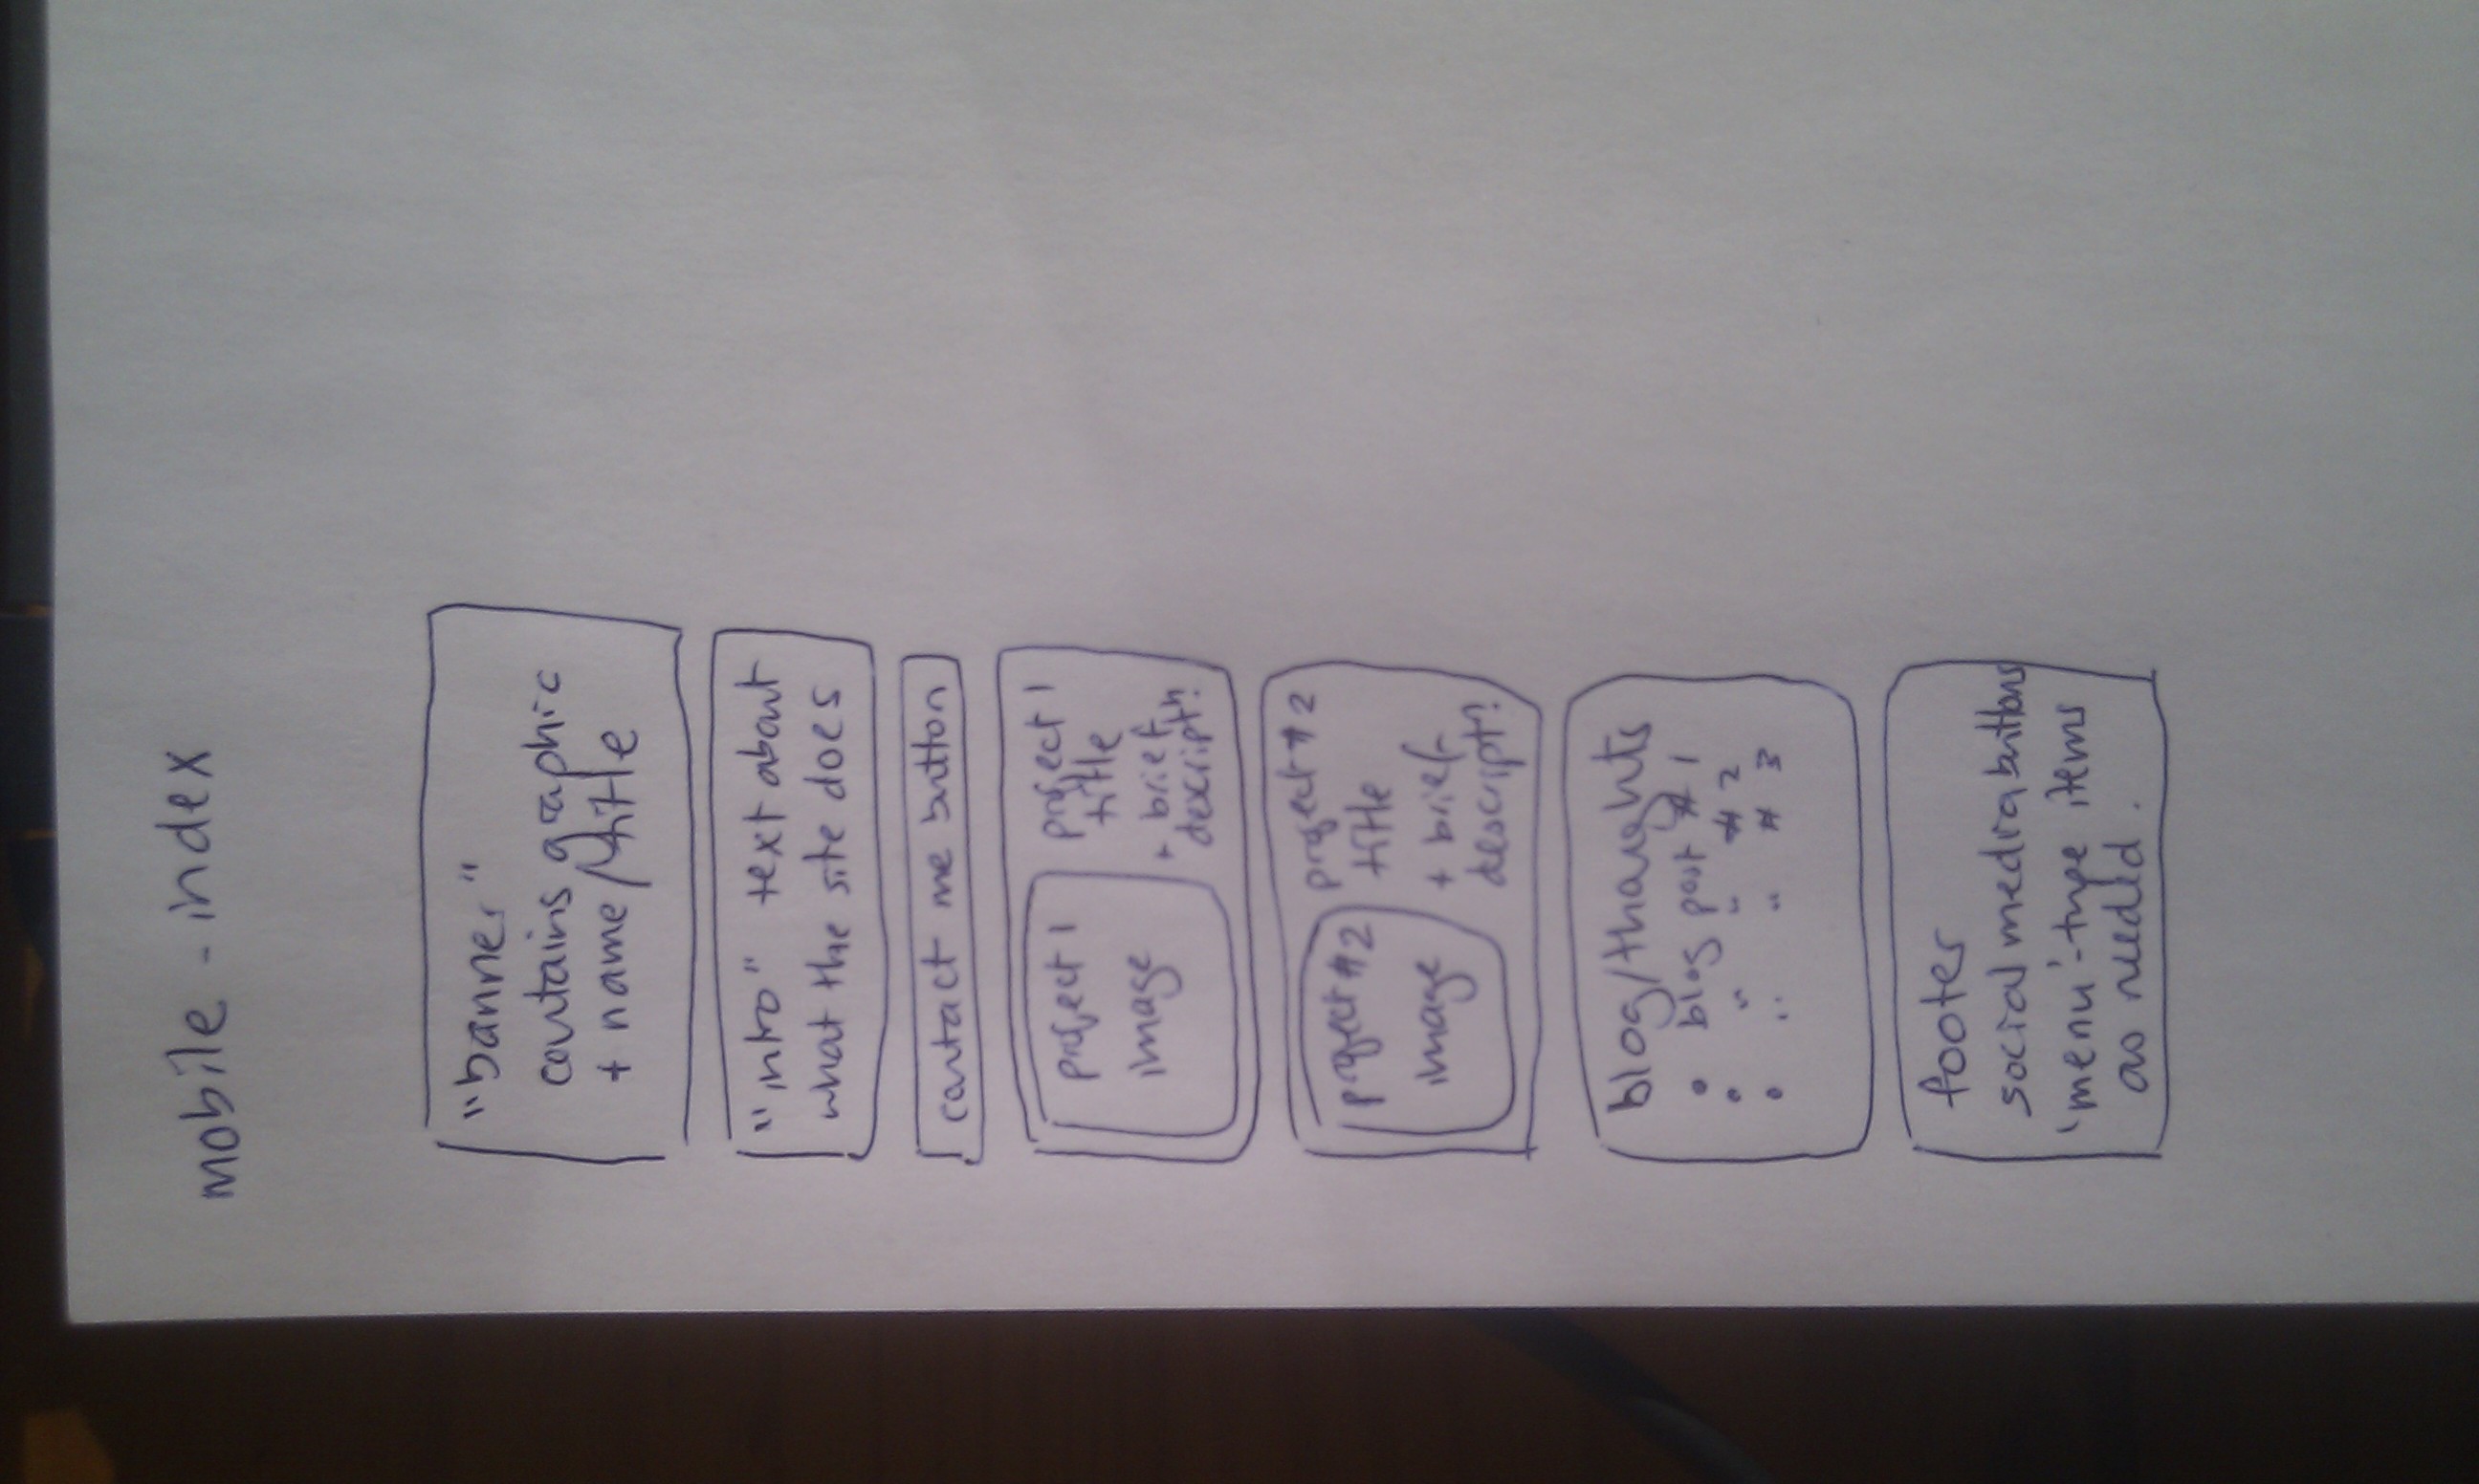 mobile - index
"banner"
contains graphic
+ name/title
"intro" text about
what the site does
contact me button
project 1
image
project 1
title
+ brief
descript'n
project #2
image
project #2
title
+ brief
descript'n
blog/thoughts
• blog post #1
• " " #2
• " " #3
footer
social media buttons
'menu'-type items
as needed.